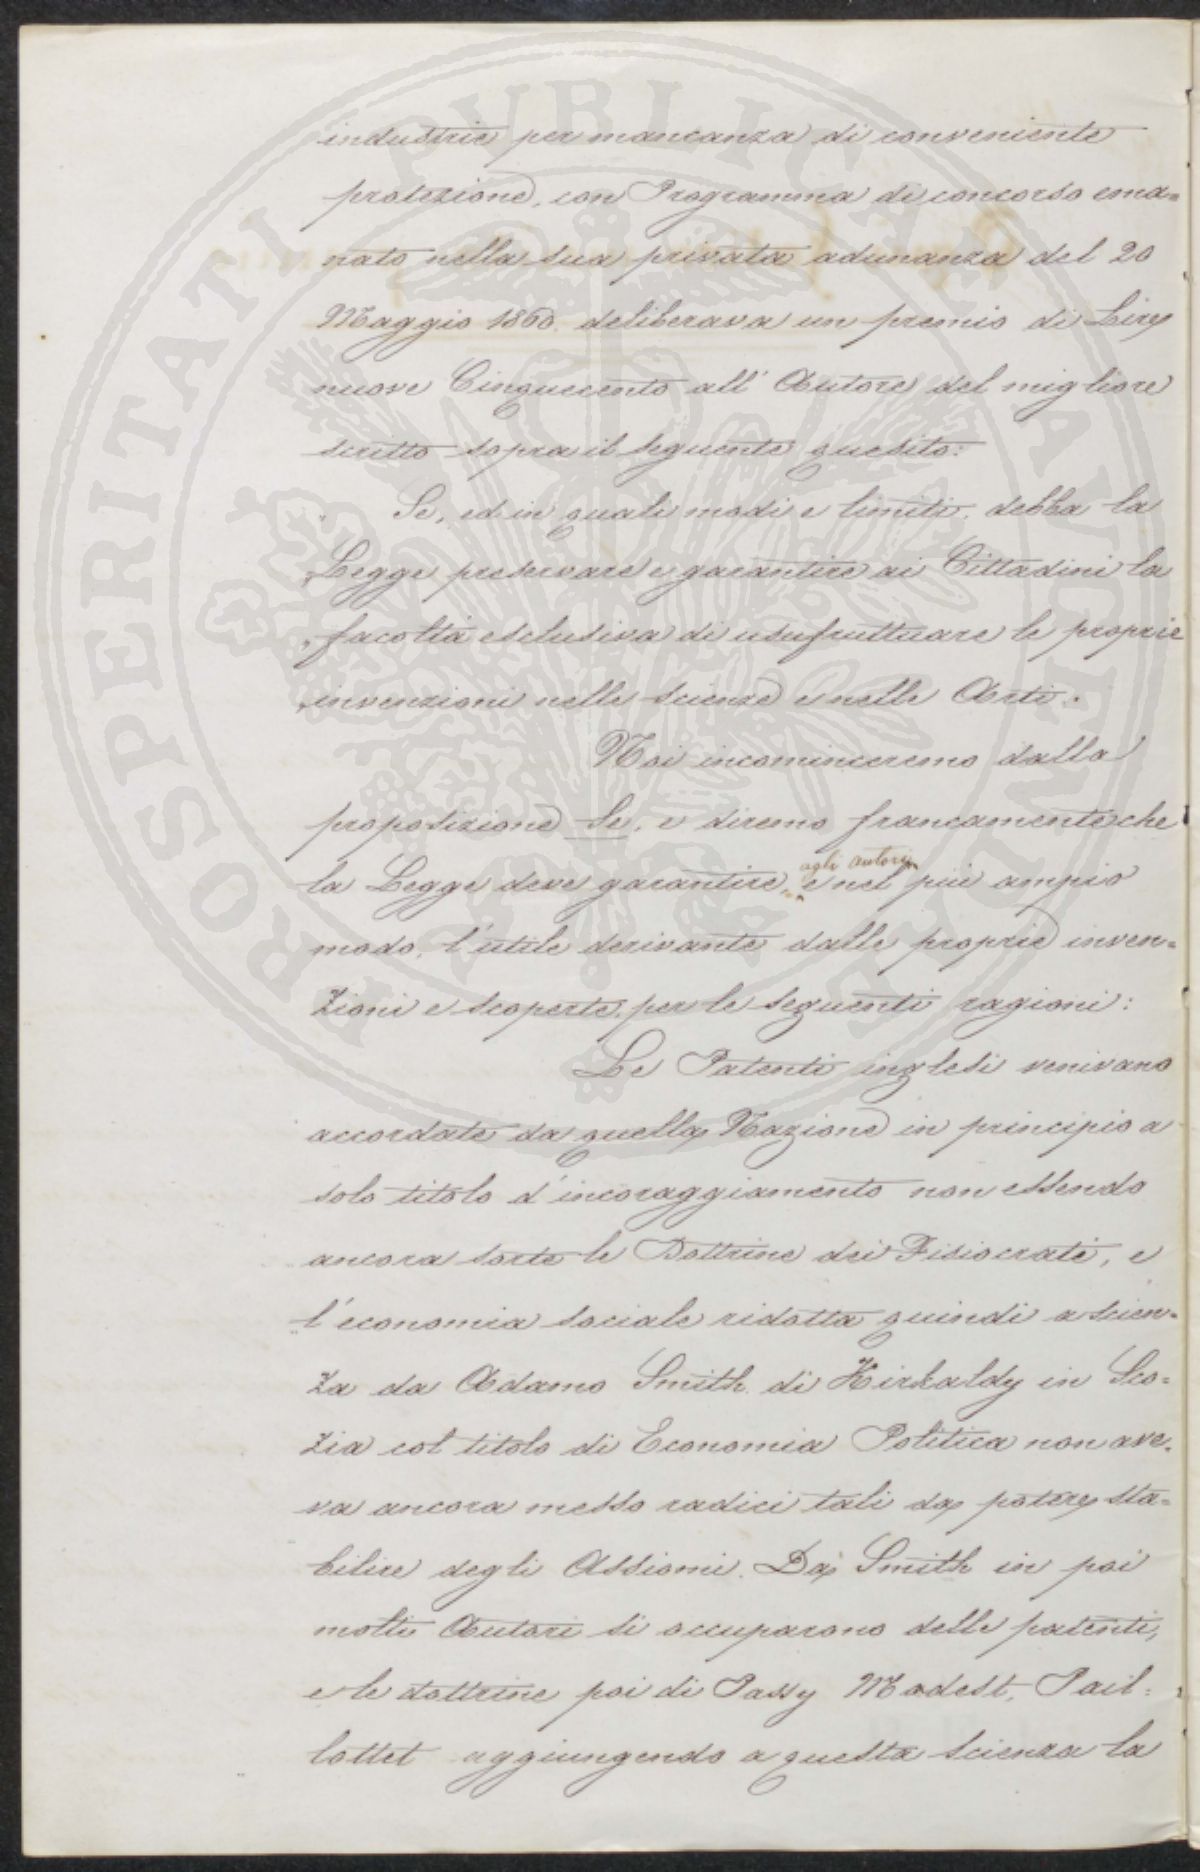 industrie per mancanza di conveniente
protezione, con Programma di concorso ema=
nato nella sua privata adunanza del 20
Maggio 1860 deliberava un premio di Lire
nuove Cinquecento all' Autore del migliore
scritto sopra il seguente quesito:
„ Se, ed in quali modi e limiti, debba la
„Legge preservare e garantire ai Cittadini la
„facoltà esclusiva di usufruttuare le proprie
„invenzioni nelle scienze e nelle Arti.
Noi incominceremo dalla
proposizione Se, e diremo francamente che
agli autori
la Legge deve garantire, e nel più ampio
modo, l'utile derivante dalle proprie inven=
zioni e scoperte, per le seguenti ragioni:
Le Patenti inglesi venivano
accordate da quella Nazione in principio a
solo titolo d'incoraggiamento non essendo
ancora sorte le Dottrine dei Fisiocrati, e
l'economia sociale ridotta quindi a scien=
za da Adamo Smith di Kirkaldy in Sco=
zia col titolo di Economia Politica non ave=
va ancora messo radici tali da potere sta=
bilire degli Assiomi. Da Smith in poi
molti Autori si occuparono delle patenti,
e le dottrine poi di Passy Modest, Pail=
lottet aggiungendo a questa scienza la
PROSPERITATI PUBLICAE AUGENDAE